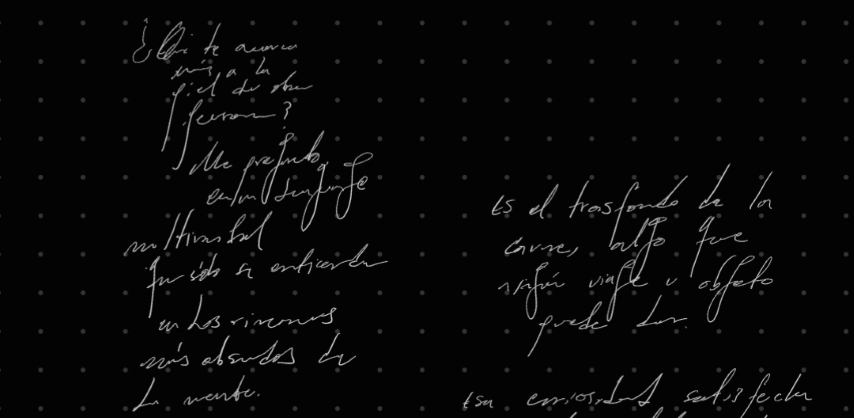 ¿Qué te acerca
más a la
piel de otra
persona?
Me pregunto,
en un lenguaje
multiversal
que sólo se entiende
en los rincones
más absurdos de
la mente.
Es el trasfondo de la
carne, algo que
ningún viaje u objeto
puede dar.
Esa curiosidad satisfecha